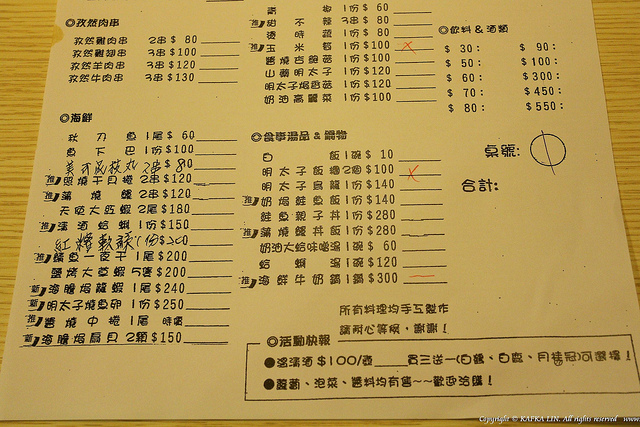 ◎孜然肉串
孜然雞肉串 2串 $ 80
孜然雞翅串 3串 $100
孜然羊肉串 3串 $120
孜然牛肉串 3串 $130
◎海鮮
秋刀魚 1尾 $ 60
魚下巴 1份 $100
2串 $ 80
照燒干貝捲 2串 $120
蒲燒鰻 2串 $120
天使大紅蝦 2尾 $180
清酒蛤蜊 1份 $150
1份 $200
鯖魚一夜干 1尾 $200
鹽烤大草蝦 5隻 $200
海膽焗龍蝦 1尾 $240
明太子燒魚卵 1份 $250
醬燒中捲 1尾 時價
海膽焗扇貝 2顆 $150
1份 $ 60
甜不辣 3串 $ 80
時蔬 1份 $ 80
推 玉米筍 1份 $100 X
醬燒杏鮑菇 1份 $100
山藥明太子 1份 $120
明太子焗香菇 1份 $120
奶油高麗菜 1份 $100
◎食事湯品 & 鍋物
白飯 1碗 $ 10
明太子飯糰 2個 $100 X
明太子烏龍 1份 $140
推 奶焗鮭魚飯 1份 $140
鮭魚親子丼 1份 $280
推 蒲燒鰻丼飯 1份 $280
奶油大蛤味噌湯 1碗 $ 60
蛤蜊湯 1碗 $120
推 海鮮牛奶鍋 1鍋 $300
◎飲料 & 酒類
$ 30: $ 90:
$ 50: $100:
$ 60: $300:
$ 70: $450:
$ 80: $550:
桌號:
合計:
所有料理均手工製作
請耐心等候,謝謝!
◎活動快報
●溫清酒 $100/壺 買三送一(白鶴、白鹿、月桂冠)可選擇!
●蘿蔔、泡菜、醬料均有售~~歡迎洽購!
Copyright © KAFKA LIN. All rights reserved www